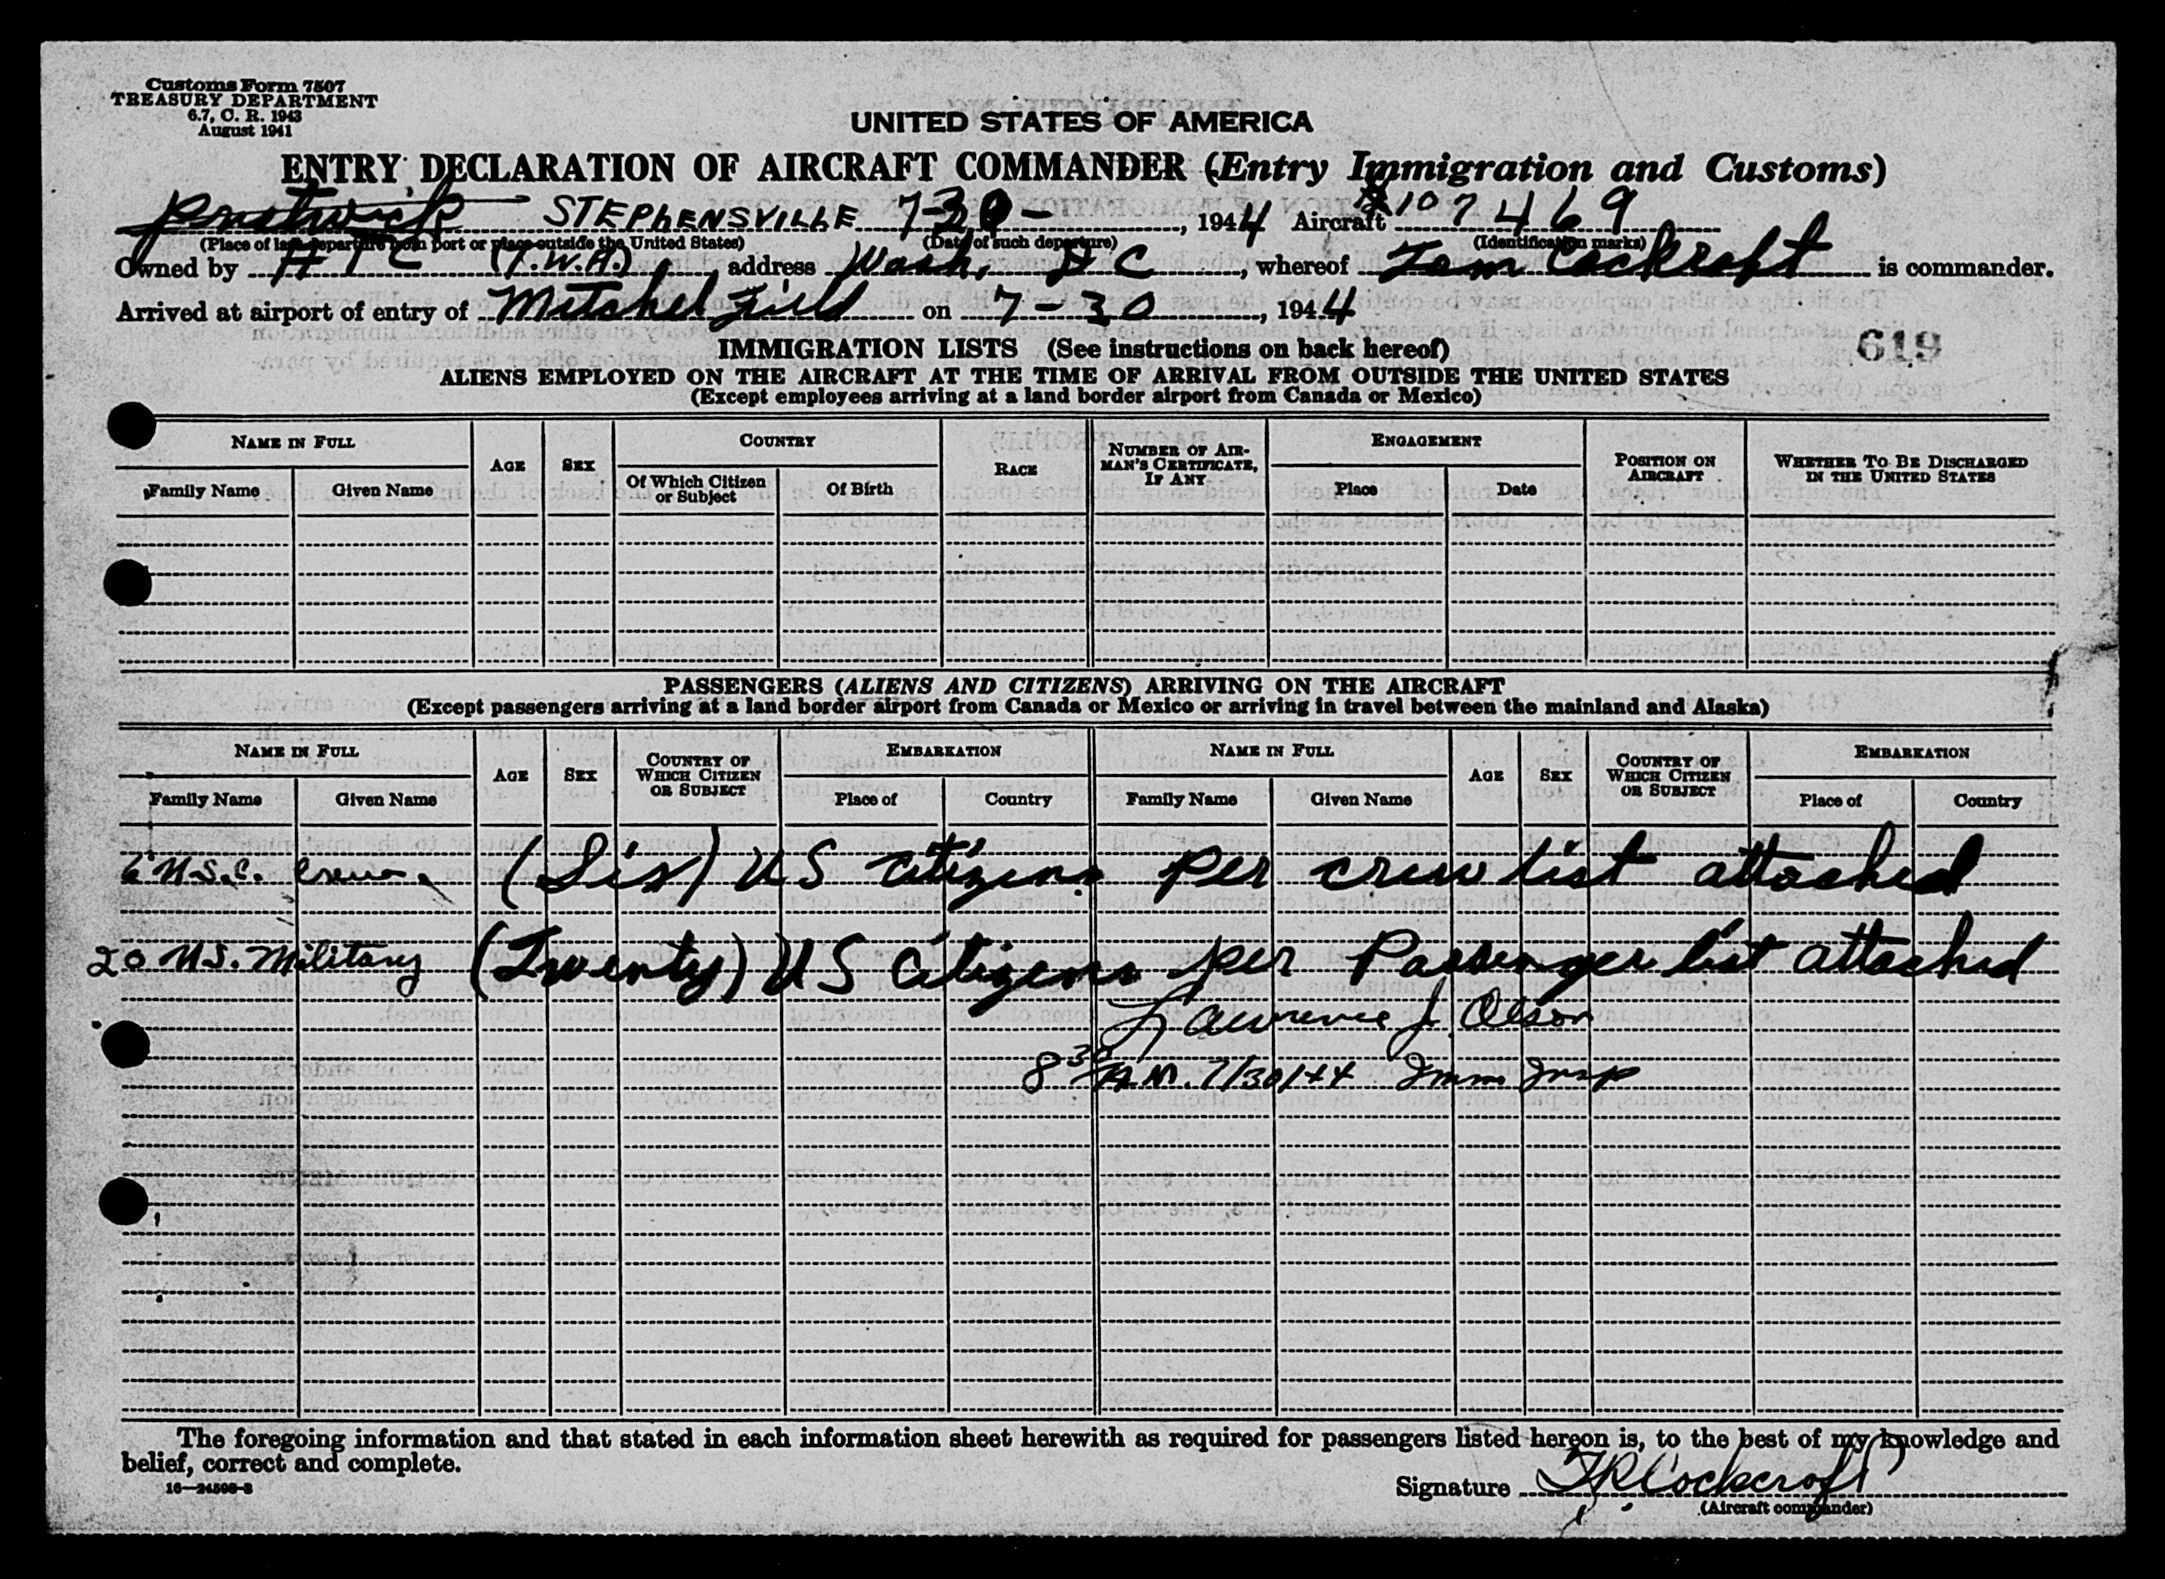 Customs Form 7507
TREASURY DEPARTMENT
6.7, C. R. 1943
August 1941
UNITED STATES OF AMERICA
ENTRY DECLARATION OF AIRCRAFT COMMANDER (Entry Immigration and Customs)
Prestwick STEPHENSVILLE 7-30-, 1944 Aircraft #107469
(Place of last departure from port or place outside the United States) (Date of such departure) (Identification marks)
Owned by ATC (T.W.A.), address Wash, D C, whereof Tom Cockroft is commander.
Arrived at airport of entry of Mitchel Field on 7-30, 1944
619
IMMIGRATION LISTS (See instructions on back hereof)
ALIENS EMPLOYED ON THE AIRCRAFT AT THE TIME OF ARRIVAL FROM OUTSIDE THE UNITED STATES
(Except employees arriving at a land border airport from Canada or Mexico)
NAME IN FULL AGE SEX COUNTRY RACE NUMBER OF AIRMAN'S CERTIFICATE, IF ANY ENGAGEMENT POSITION ON AIRCRAFT WHETHER TO BE DISCHARGED IN THE UNITED STATES
Family Name Given Name Of Which Citizen or Subject Of Birth Place Date
PASSENGERS (ALIENS AND CITIZENS) ARRIVING ON THE AIRCRAFT
(Except passengers arriving at a land border airport from Canada or Mexico or arriving in travel between the mainland and Alaska)
NAME IN FULL AGE SEX COUNTRY OF WHICH CITIZEN OR SUBJECT EMBARKATION NAME IN FULL AGE SEX COUNTRY OF WHICH CITIZEN OR SUBJECT EMBARKATION
Family Name Given Name Place of Country Family Name Given Name Place of Country
6 U.S.C. crew. (Six) US citizens per crew list attached
20 U.S. Military (Twenty) US Citizens per Passenger list attached
Lawrence J. Olson
8 30 A.M. 7/30/44 Imm Insp
The foregoing information and that stated in each information sheet herewith as required for passengers listed hereon is, to the best of my knowledge and
belief, correct and complete.
16—24598-2
Signature T R Cockcroft
(Aircraft commander)